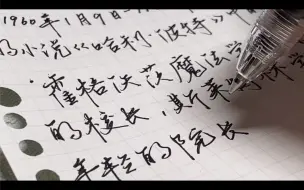 1960年1月9日
的小说《哈利·波特》中
霍格沃茨魔法学
的校长,斯莱
的院长